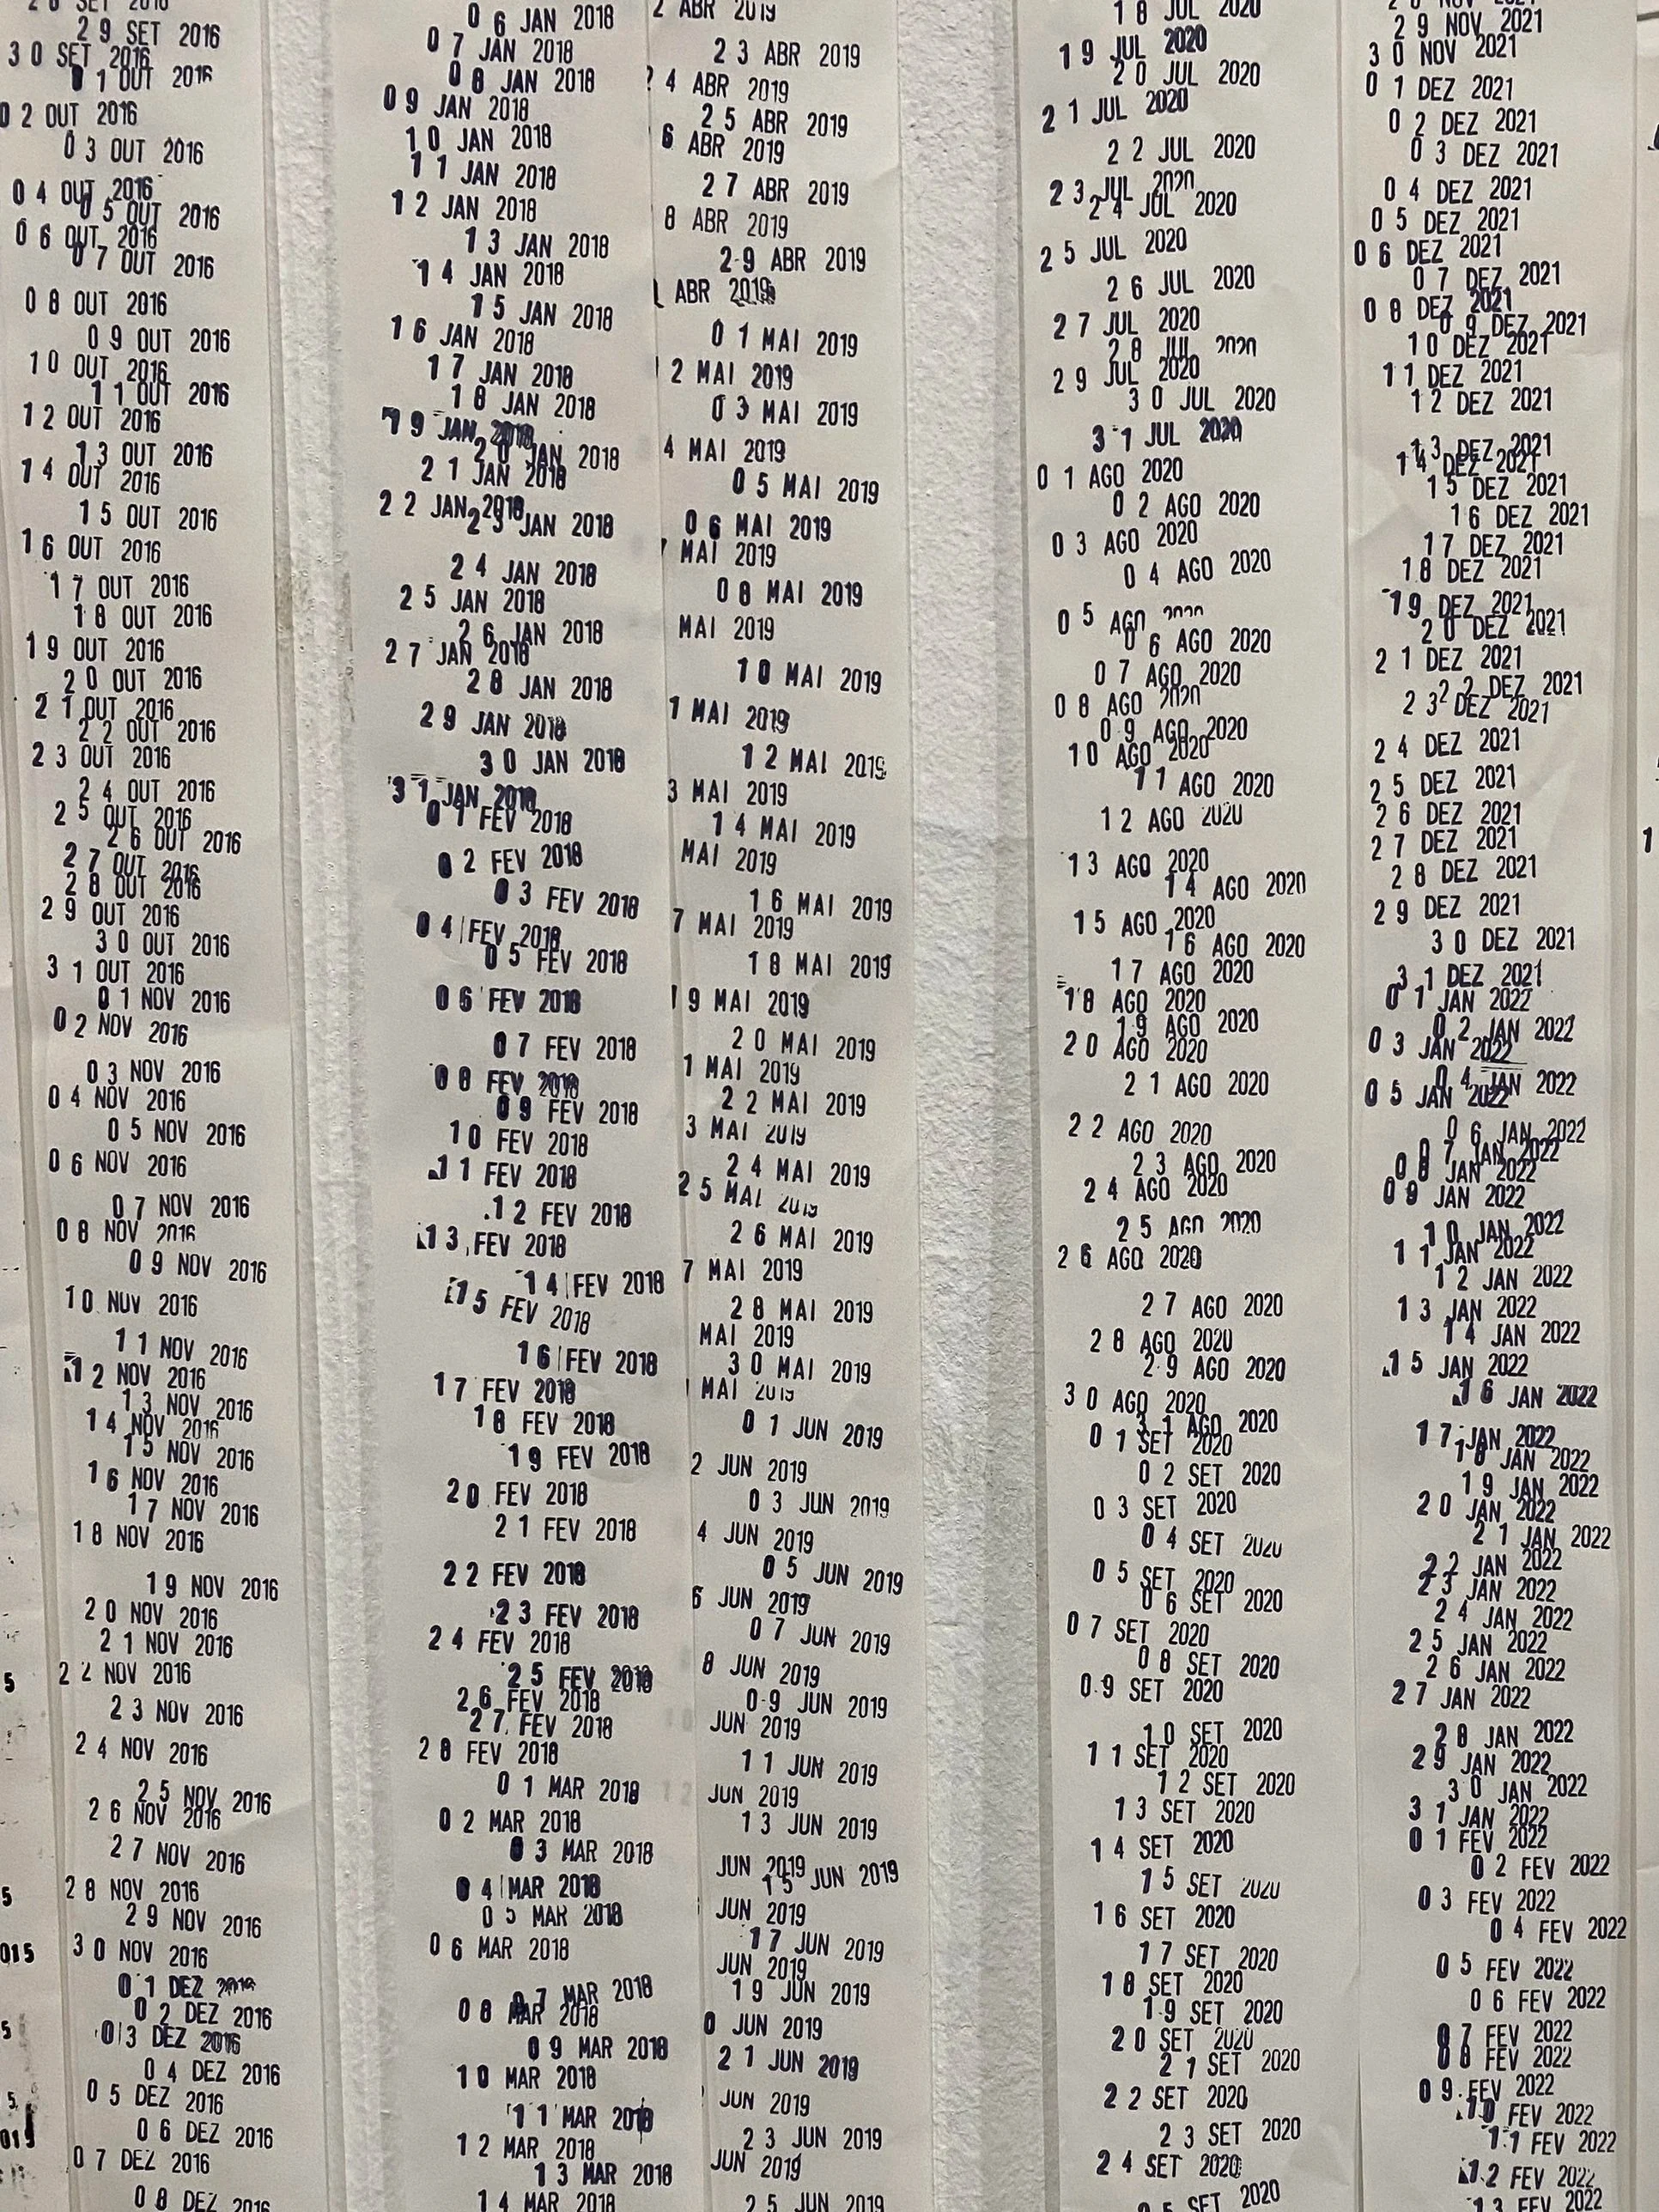 29 SET 2016
30 SET 2016
01 OUT 2016
02 OUT 2016
03 OUT 2016
04 OUT 2016
05 OUT 2016
06 OUT 2016
07 OUT 2016
08 OUT 2016
09 OUT 2016
10 OUT 2016
11 OUT 2016
12 OUT 2016
13 OUT 2016
14 OUT 2016
15 OUT 2016
16 OUT 2016
17 OUT 2016
18 OUT 2016
19 OUT 2016
20 OUT 2016
21 OUT 2016
22 OUT 2016
23 OUT 2016
24 OUT 2016
25 OUT 2016
26 OUT 2016
27 OUT 2016
28 OUT 2016
29 OUT 2016
30 OUT 2016
31 OUT 2016
01 NOV 2016
02 NOV 2016
03 NOV 2016
04 NOV 2016
05 NOV 2016
06 NOV 2016
07 NOV 2016
08 NOV 2016
09 NOV 2016
10 NOV 2016
11 NOV 2016
12 NOV 2016
13 NOV 2016
14 NOV 2016
15 NOV 2016
16 NOV 2016
17 NOV 2016
18 NOV 2016
19 NOV 2016
20 NOV 2016
21 NOV 2016
22 NOV 2016
23 NOV 2016
24 NOV 2016
25 NOV 2016
26 NOV 2016
27 NOV 2016
28 NOV 2016
29 NOV 2016
30 NOV 2016
01 DEZ 2016
02 DEZ 2016
03 DEZ 2016
04 DEZ 2016
05 DEZ 2016
06 DEZ 2016
07 DEZ 2016
08 DEZ 2016
06 JAN 2018
07 JAN 2018
08 JAN 2018
09 JAN 2018
10 JAN 2018
11 JAN 2018
12 JAN 2018
13 JAN 2018
14 JAN 2018
15 JAN 2018
16 JAN 2018
17 JAN 2018
18 JAN 2018
19 JAN 2018
20 JAN 2018
21 JAN 2018
22 JAN 2018
23 JAN 2018
24 JAN 2018
25 JAN 2018
26 JAN 2018
27 JAN 2018
28 JAN 2018
29 JAN 2018
30 JAN 2018
31 JAN 2018
01 FEV 2018
02 FEV 2018
03 FEV 2018
04 FEV 2018
05 FEV 2018
06 FEV 2018
07 FEV 2018
08 FEV 2018
09 FEV 2018
10 FEV 2018
11 FEV 2018
12 FEV 2018
13 FEV 2018
14 FEV 2018
15 FEV 2018
16 FEV 2018
17 FEV 2018
18 FEV 2018
19 FEV 2018
20 FEV 2018
21 FEV 2018
22 FEV 2018
23 FEV 2018
24 FEV 2018
25 FEV 2018
26 FEV 2018
27 FEV 2018
28 FEV 2018
01 MAR 2018
02 MAR 2018
03 MAR 2018
04 MAR 2018
05 MAR 2018
06 MAR 2018
07 MAR 2018
08 MAR 2018
09 MAR 2018
10 MAR 2018
11 MAR 2018
12 MAR 2018
13 MAR 2018
14 MAR 2018
2 ABR 2019
23 ABR 2019
24 ABR 2019
25 ABR 2019
6 ABR 2019
27 ABR 2019
8 ABR 2019
29 ABR 2019
ABR 2019
01 MAI 2019
2 MAI 2019
03 MAI 2019
4 MAI 2019
05 MAI 2019
06 MAI 2019
MAI 2019
08 MAI 2019
MAI 2019
10 MAI 2019
1 MAI 2019
12 MAI 2019
3 MAI 2019
14 MAI 2019
MAI 2019
16 MAI 2019
7 MAI 2019
18 MAI 2019
19 MAI 2019
20 MAI 2019
1 MAI 2019
22 MAI 2019
3 MAI 2019
24 MAI 2019
25 MAI 2019
26 MAI 2019
7 MAI 2019
28 MAI 2019
MAI 2019
30 MAI 2019
MAI 2019
01 JUN 2019
2 JUN 2019
03 JUN 2019
4 JUN 2019
05 JUN 2019
6 JUN 2019
07 JUN 2019
8 JUN 2019
09 JUN 2019
10 JUN 2019
11 JUN 2019
12 JUN 2019
13 JUN 2019
JUN 2019
15 JUN 2019
JUN 2019
17 JUN 2019
JUN 2019
19 JUN 2019
0 JUN 2019
21 JUN 2019
JUN 2019
23 JUN 2019
JUN 2019
25 JUN 2019
18 JUL 2020
19 JUL 2020
20 JUL 2020
21 JUL 2020
22 JUL 2020
23 JUL 2020
24 JUL 2020
25 JUL 2020
26 JUL 2020
27 JUL 2020
28 JUL 2020
29 JUL 2020
30 JUL 2020
31 JUL 2020
01 AGO 2020
02 AGO 2020
03 AGO 2020
04 AGO 2020
05 AGO 2020
06 AGO 2020
07 AGO 2020
08 AGO 2020
09 AGO 2020
10 AGO 2020
11 AGO 2020
12 AGO 2020
13 AGO 2020
14 AGO 2020
15 AGO 2020
16 AGO 2020
17 AGO 2020
18 AGO 2020
19 AGO 2020
20 AGO 2020
21 AGO 2020
22 AGO 2020
23 AGO 2020
24 AGO 2020
25 AGO 2020
26 AGO 2020
27 AGO 2020
28 AGO 2020
29 AGO 2020
30 AGO 2020
31 AGO 2020
01 SET 2020
02 SET 2020
03 SET 2020
04 SET 2020
05 SET 2020
06 SET 2020
07 SET 2020
08 SET 2020
09 SET 2020
10 SET 2020
11 SET 2020
12 SET 2020
13 SET 2020
14 SET 2020
15 SET 2020
16 SET 2020
17 SET 2020
18 SET 2020
19 SET 2020
20 SET 2020
21 SET 2020
22 SET 2020
23 SET 2020
24 SET 2020
25 SET 2020
29 NOV 2021
30 NOV 2021
01 DEZ 2021
02 DEZ 2021
03 DEZ 2021
04 DEZ 2021
05 DEZ 2021
06 DEZ 2021
07 DEZ 2021
08 DEZ 2021
09 DEZ 2021
10 DEZ 2021
11 DEZ 2021
12 DEZ 2021
13 DEZ 2021
14 DEZ 2021
15 DEZ 2021
16 DEZ 2021
17 DEZ 2021
18 DEZ 2021
19 DEZ 2021
20 DEZ 2021
21 DEZ 2021
22 DEZ 2021
23 DEZ 2021
24 DEZ 2021
25 DEZ 2021
26 DEZ 2021
27 DEZ 2021
28 DEZ 2021
29 DEZ 2021
30 DEZ 2021
31 DEZ 2021
01 JAN 2022
02 JAN 2022
03 JAN 2022
04 JAN 2022
05 JAN 2022
06 JAN 2022
07 JAN 2022
08 JAN 2022
09 JAN 2022
10 JAN 2022
11 JAN 2022
12 JAN 2022
13 JAN 2022
14 JAN 2022
15 JAN 2022
16 JAN 2022
17 JAN 2022
18 JAN 2022
19 JAN 2022
20 JAN 2022
21 JAN 2022
22 JAN 2022
23 JAN 2022
24 JAN 2022
25 JAN 2022
26 JAN 2022
27 JAN 2022
28 JAN 2022
29 JAN 2022
30 JAN 2022
31 JAN 2022
01 FEV 2022
02 FEV 2022
03 FEV 2022
04 FEV 2022
05 FEV 2022
06 FEV 2022
07 FEV 2022
08 FEV 2022
09 FEV 2022
10 FEV 2022
11 FEV 2022
12 FEV 2022
13 FEV 2022